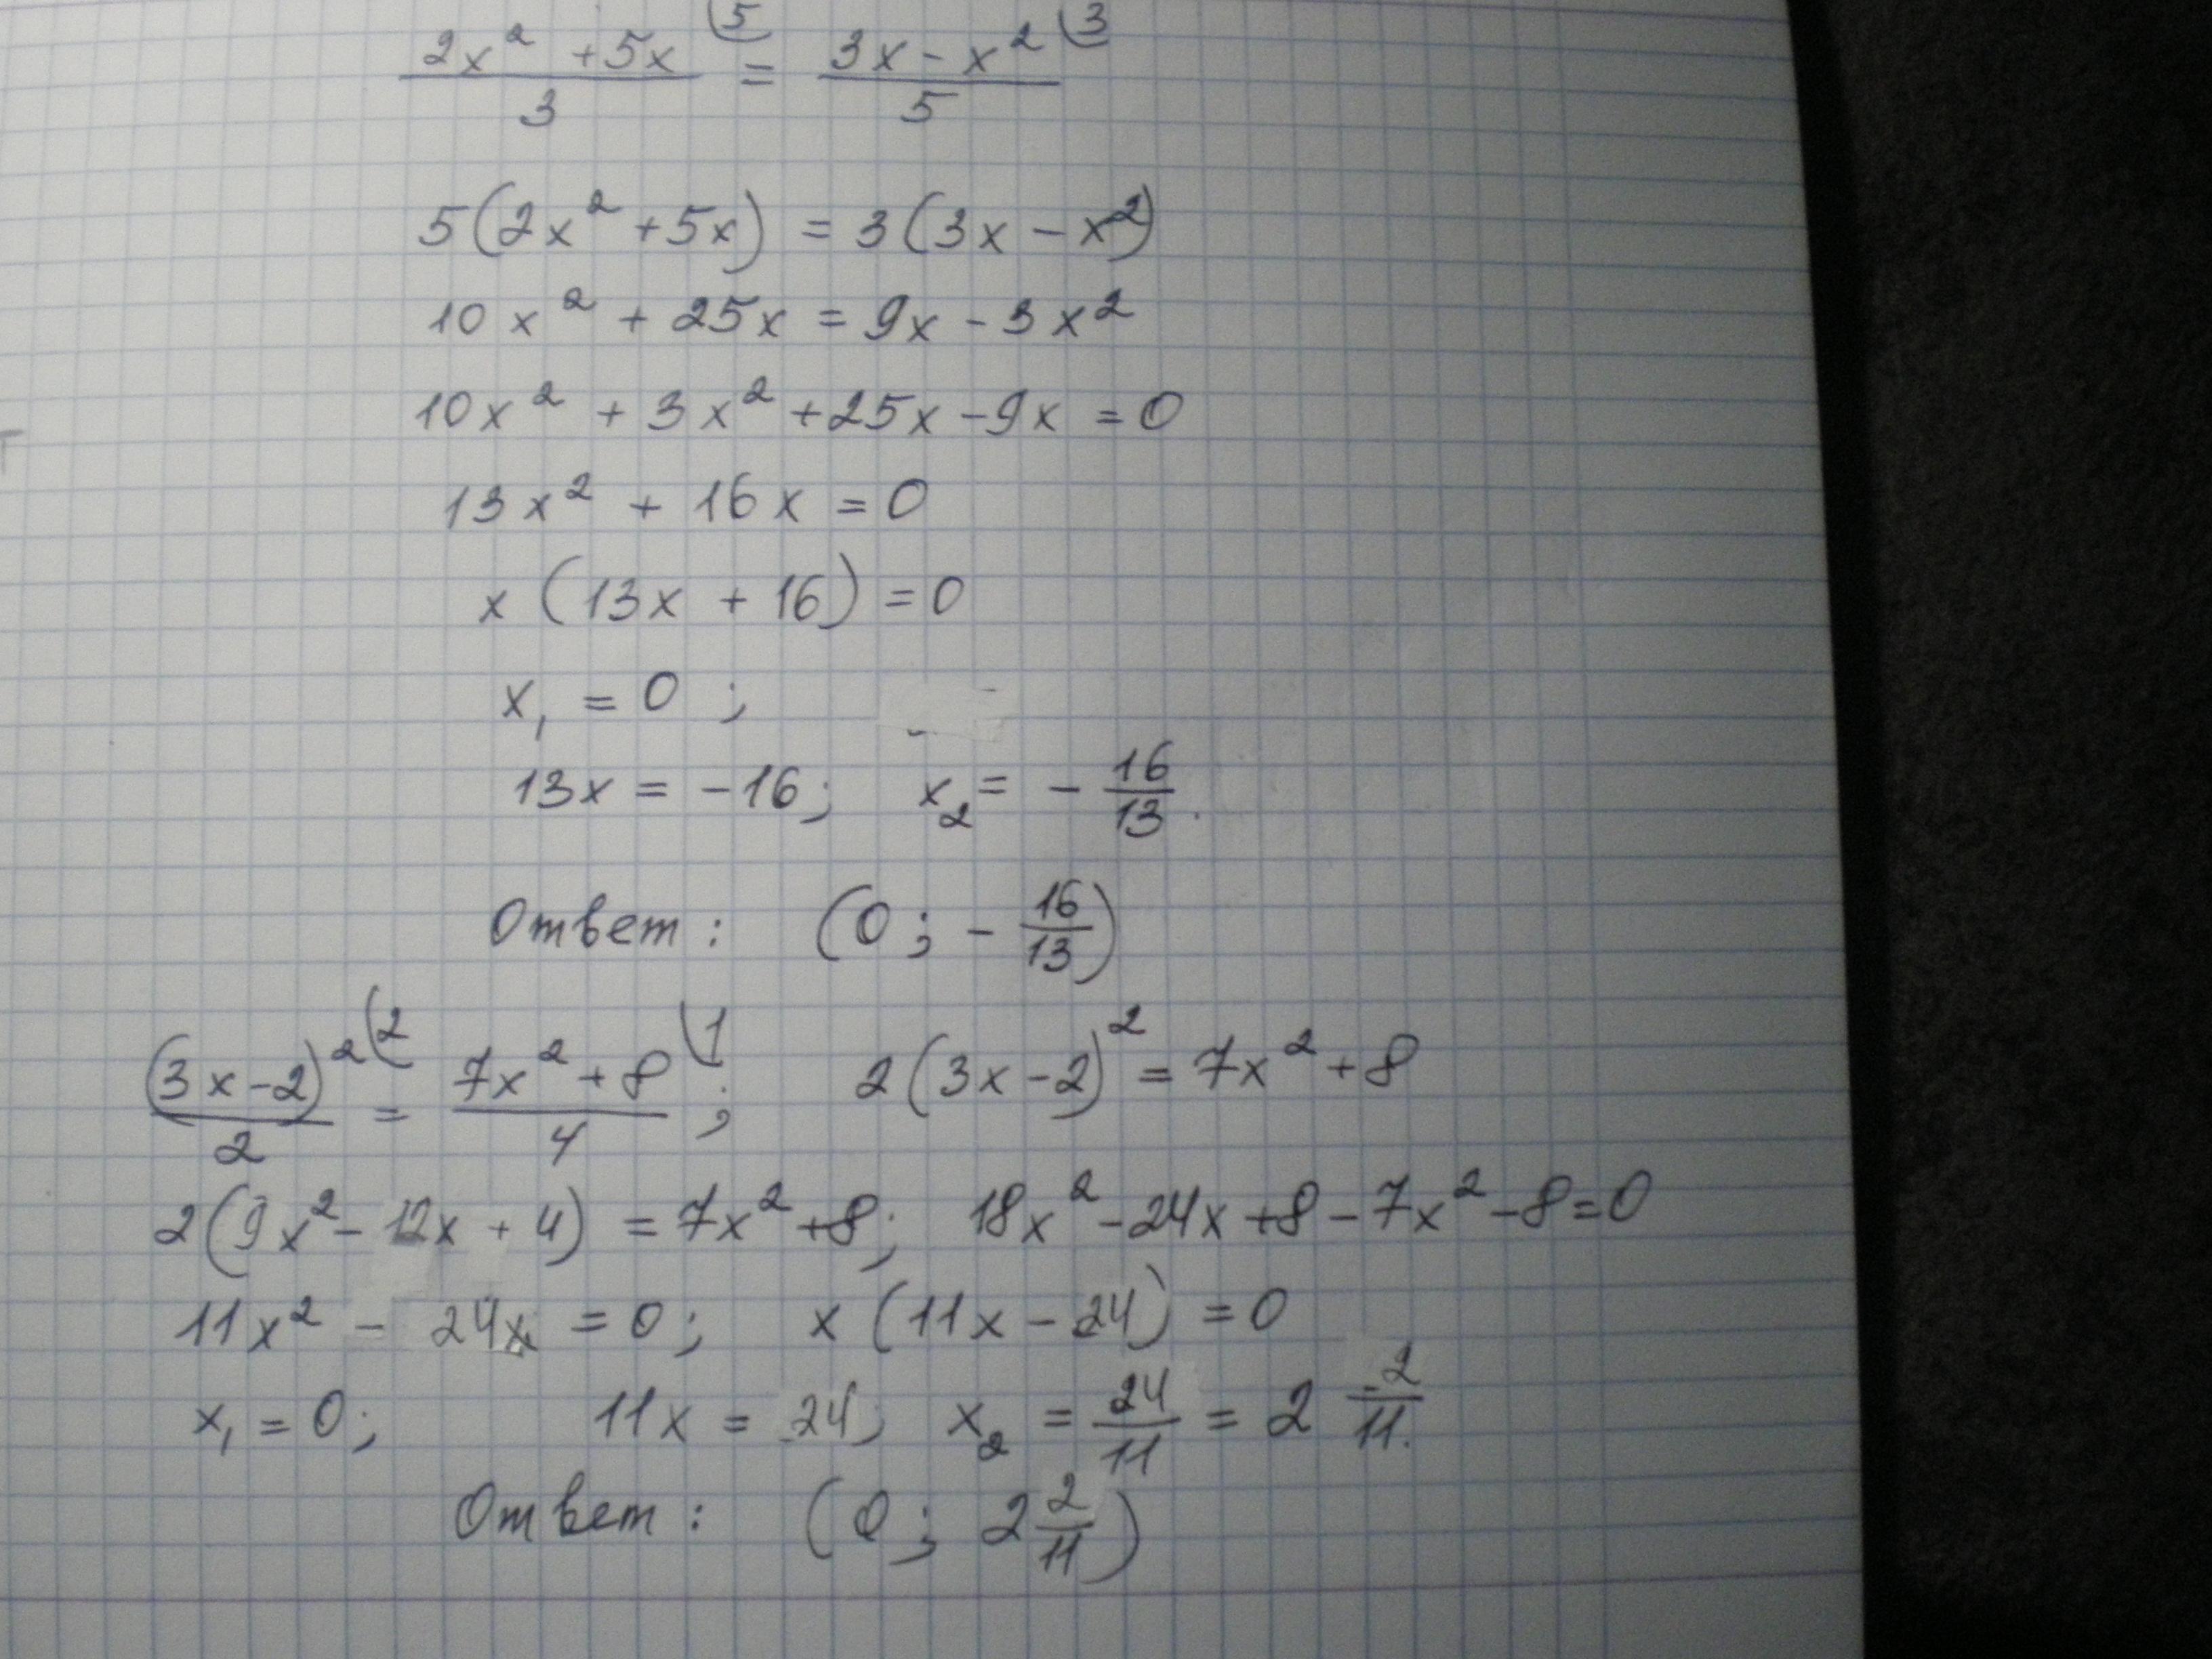 (2x² + 5x)/3 ⁽⁵ = (3x - x²)/5 ⁽³
5(2x² + 5x) = 3(3x - x²)
10x² + 25x = 9x - 3x²
10x² + 3x² + 25x - 9x = 0
13x² + 16x = 0
x(13x + 16) = 0
x₁ = 0;
13x = -16; x₂ = - 16/13.
Ответ: (0; - 16/13)
(3x-2)²/2 ⁽² = (7x² + 8)/4 ⁽¹; 2(3x-2)² = 7x² + 8
2(9x² - 12x + 4) = 7x² + 8; 18x² - 24x + 8 - 7x² - 8 = 0
11x² - 24x = 0; x(11x - 24) = 0
x₁ = 0; 11x = 24; x₂ = 24/11 = 2 2/11.
Ответ: (0; 2 2/11)